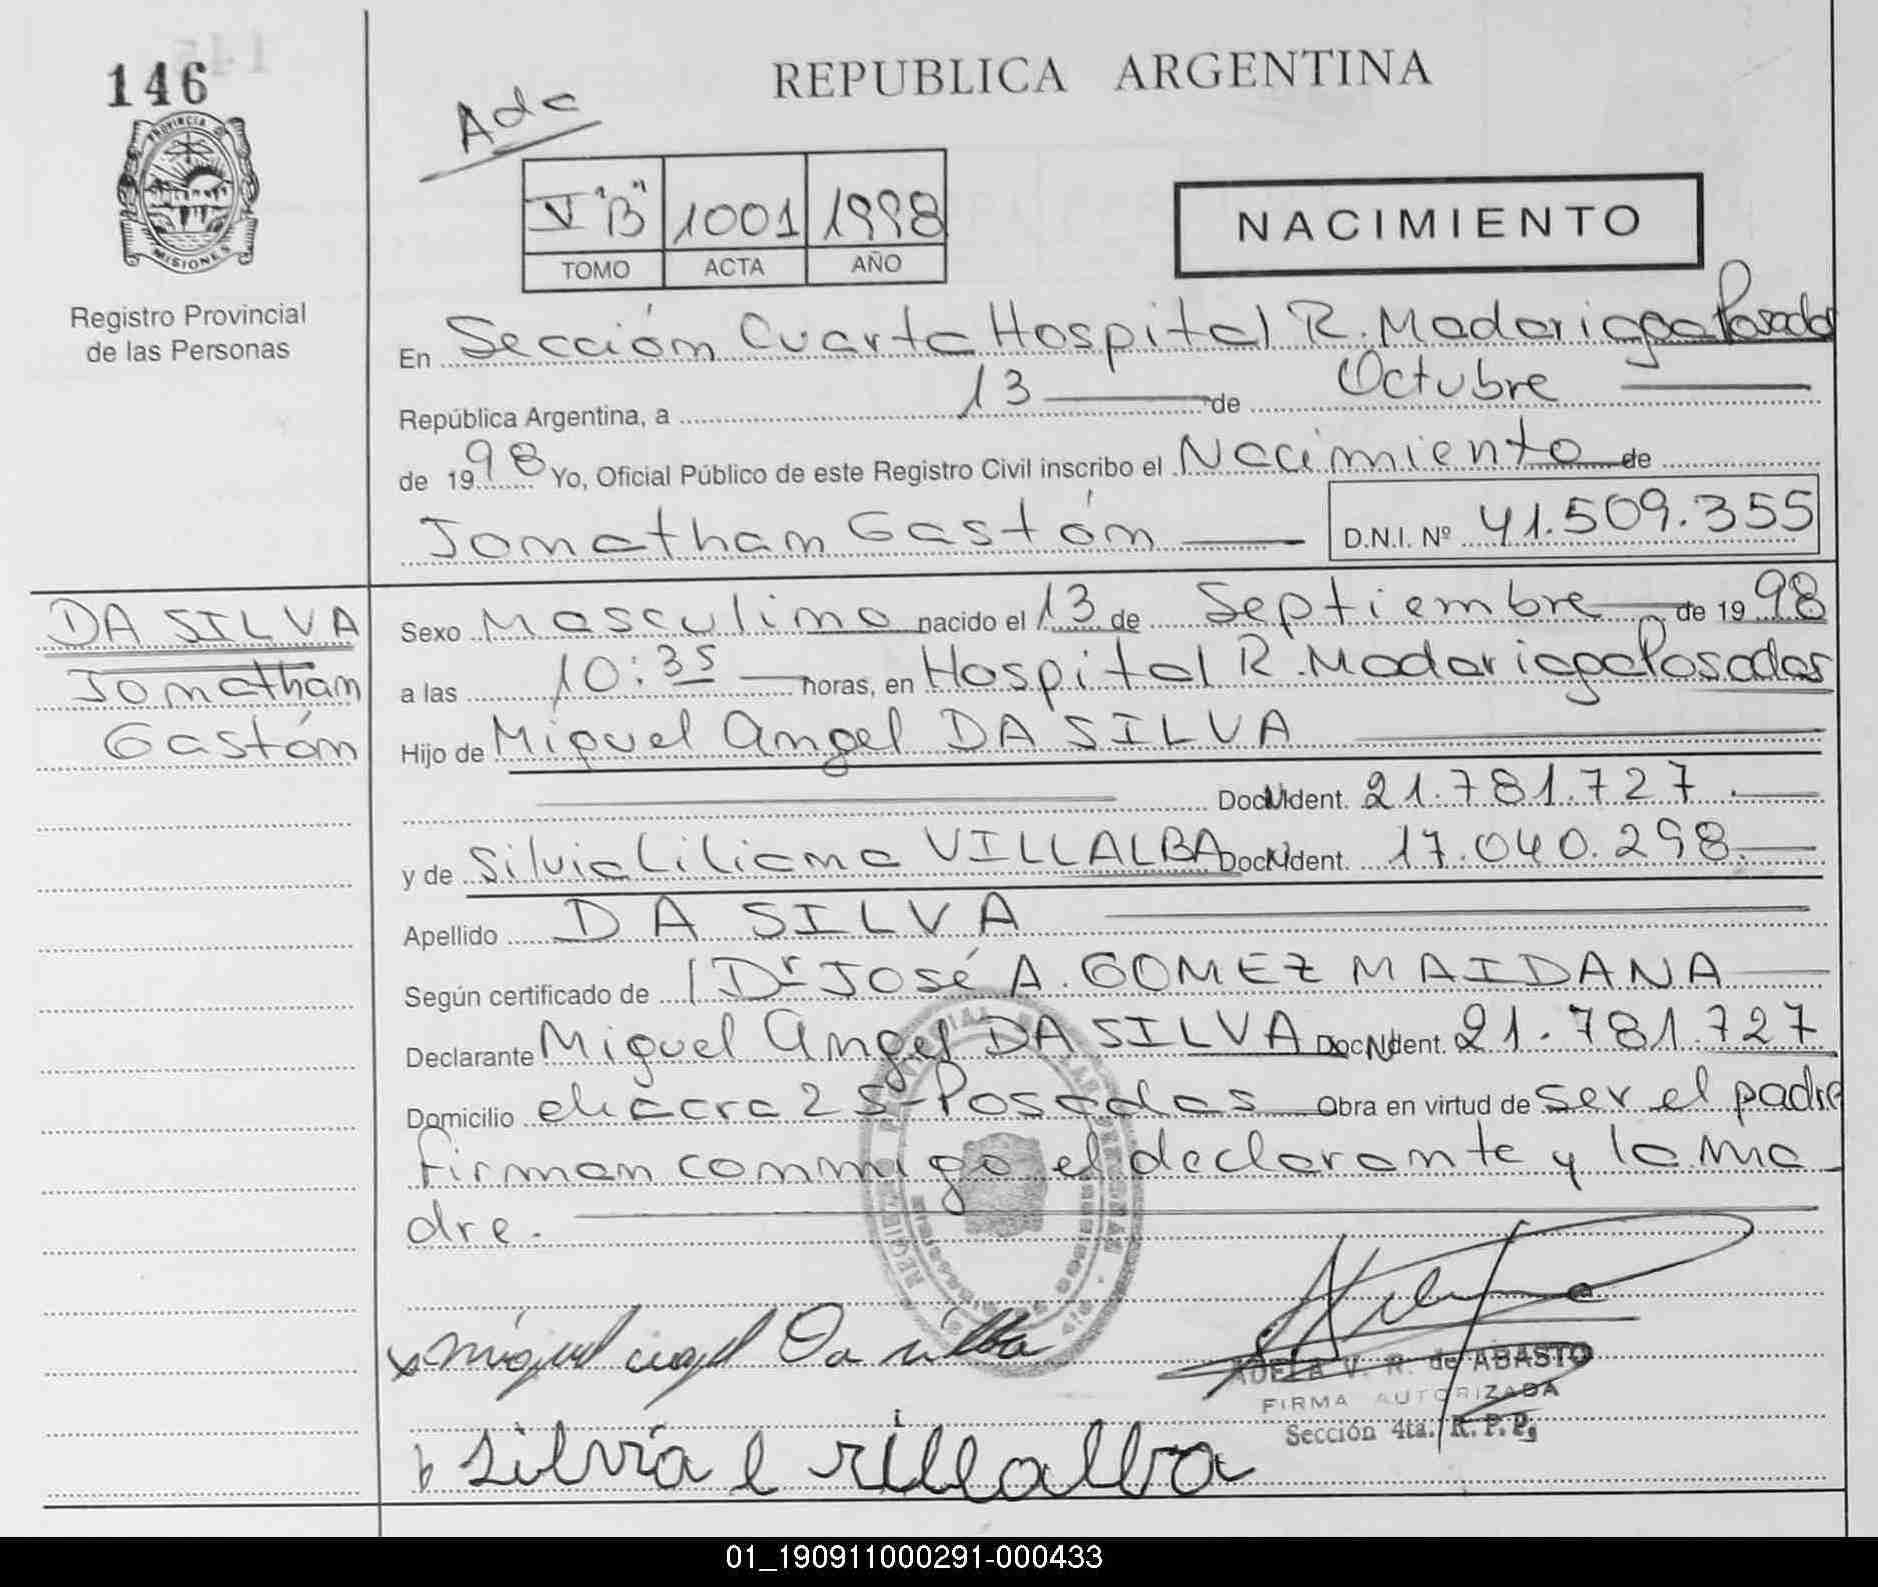 146
PROVINCIA DE
MISIONES
Registro Provincial
de las Personas
REPUBLICA ARGENTINA
Ada
V "B" 1001 1998
TOMO ACTA AÑO
NACIMIENTO
En Sección Cuarta Hospital R. Madariaga Posadas
República Argentina, a 13 de Octubre
de 1998 Yo, Oficial Público de este Registro Civil inscribo el Nacimiento de
Jonathan Gastón D.N.I. Nº 41.509.355
DA SILVA
Jonathan
Gastón
Sexo Masculino nacido el 13 de Septiembre de 1998
a las 10:35 horas, en Hospital R. Madariaga Posadas
Hijo de Miguel Angel DA SILVA
Doc. Ident. 21.781.727
y de Silvia Liliana VILLALBA Doc. Ident. 17.040.298.
Apellido DA SILVA
Según certificado de Dr José A. GOMEZ MAIDANA
Declarante Miguel Angel DA SILVA Doc. Ident. 21.781.727
Domicilio chacra 25-Posadas Obra en virtud de ser el padre
firman conmigo el declarante y la ma-
dre.
miguel angel Da silba
ADELA V. R. de ABASTO
FIRMA AUTORIZADA
Sección 4ta. R. P. P.
silvia l villalba
01_190911000291-000433